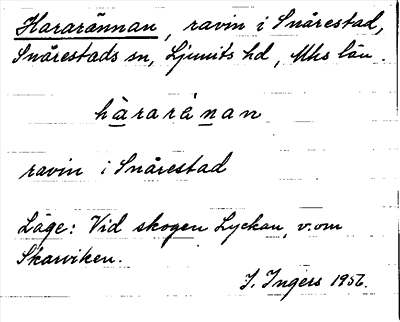 Hararännan, ravin i Snårestad,
Snårestads sn, Ljunits hd, Mhs län.
hararénan
ravin i Snårestad
Läge: Vid skogen Lyckan, v. om
Skarviken.
I. Ingers 1956.